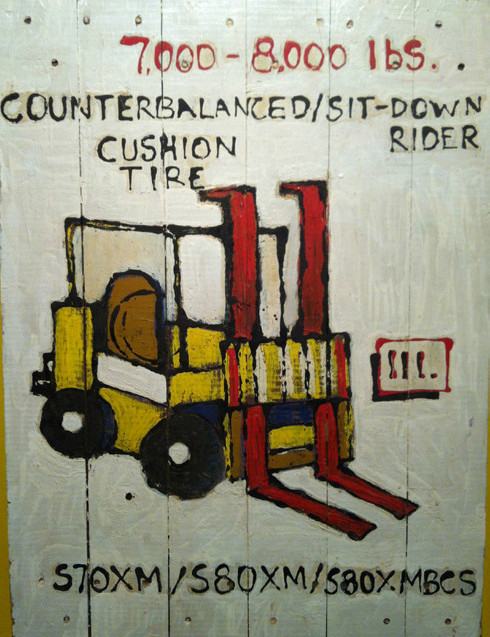 7,000-8,000 lbs.
COUNTERBALANCED/SIT-DOWN
CUSHION RIDER
TIRE
III.
S70XM/S80XM/S80XMBCS